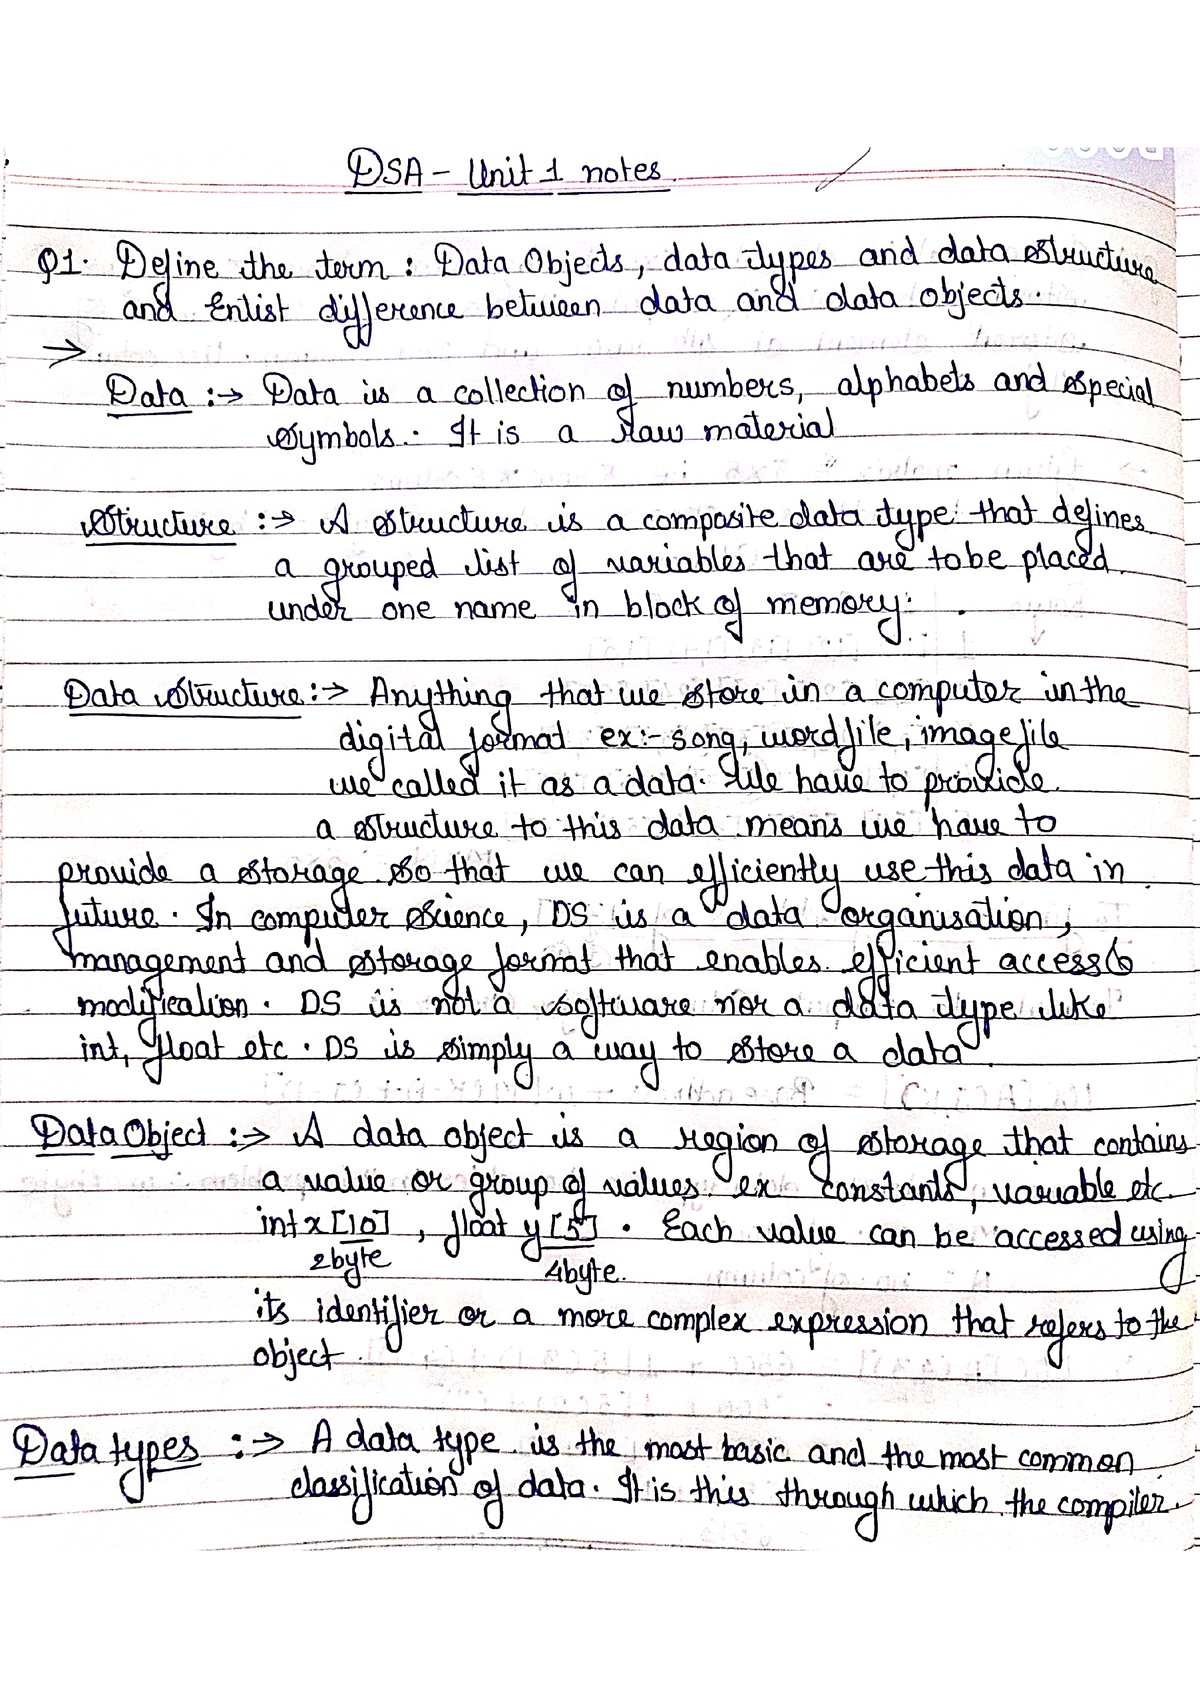 DSA - Unit 1 notes.
Q1. Define the term : Data Objects, data types and data structure
and Enlist difference between data and data objects.
→
Data :→ Data is a collection of numbers, alphabets and special
symbols. It is a raw material
Structure :→ A structure is a composite data type that defines
a grouped list of variables that are tobe placed
under one name in block of memory.
Data structure :→ Anything that we store in a computer in the
digital format ex:- song, wordfile, image file
we called it as a data. We have to provide
a structure to this data means we have to
provide a storage so that we can efficiently use this data in
future. In computer science, DS is a data organisation,
management and storage format that enables efficient access &
modification. DS is not a software nor a data type like
int, float etc. DS is simply a way to store a data.
Data Object :→ A data object is a region of storage that contains
a value or group of values. ex constants, variable etc.
int x [10] , float y [5] . Each value can be accessed using
2byte 4byte.
its identifier or a more complex expression that refers to the
object.
Data types :→ A data type is the most basic and the most common
classification of data. It is this through which the compiler.